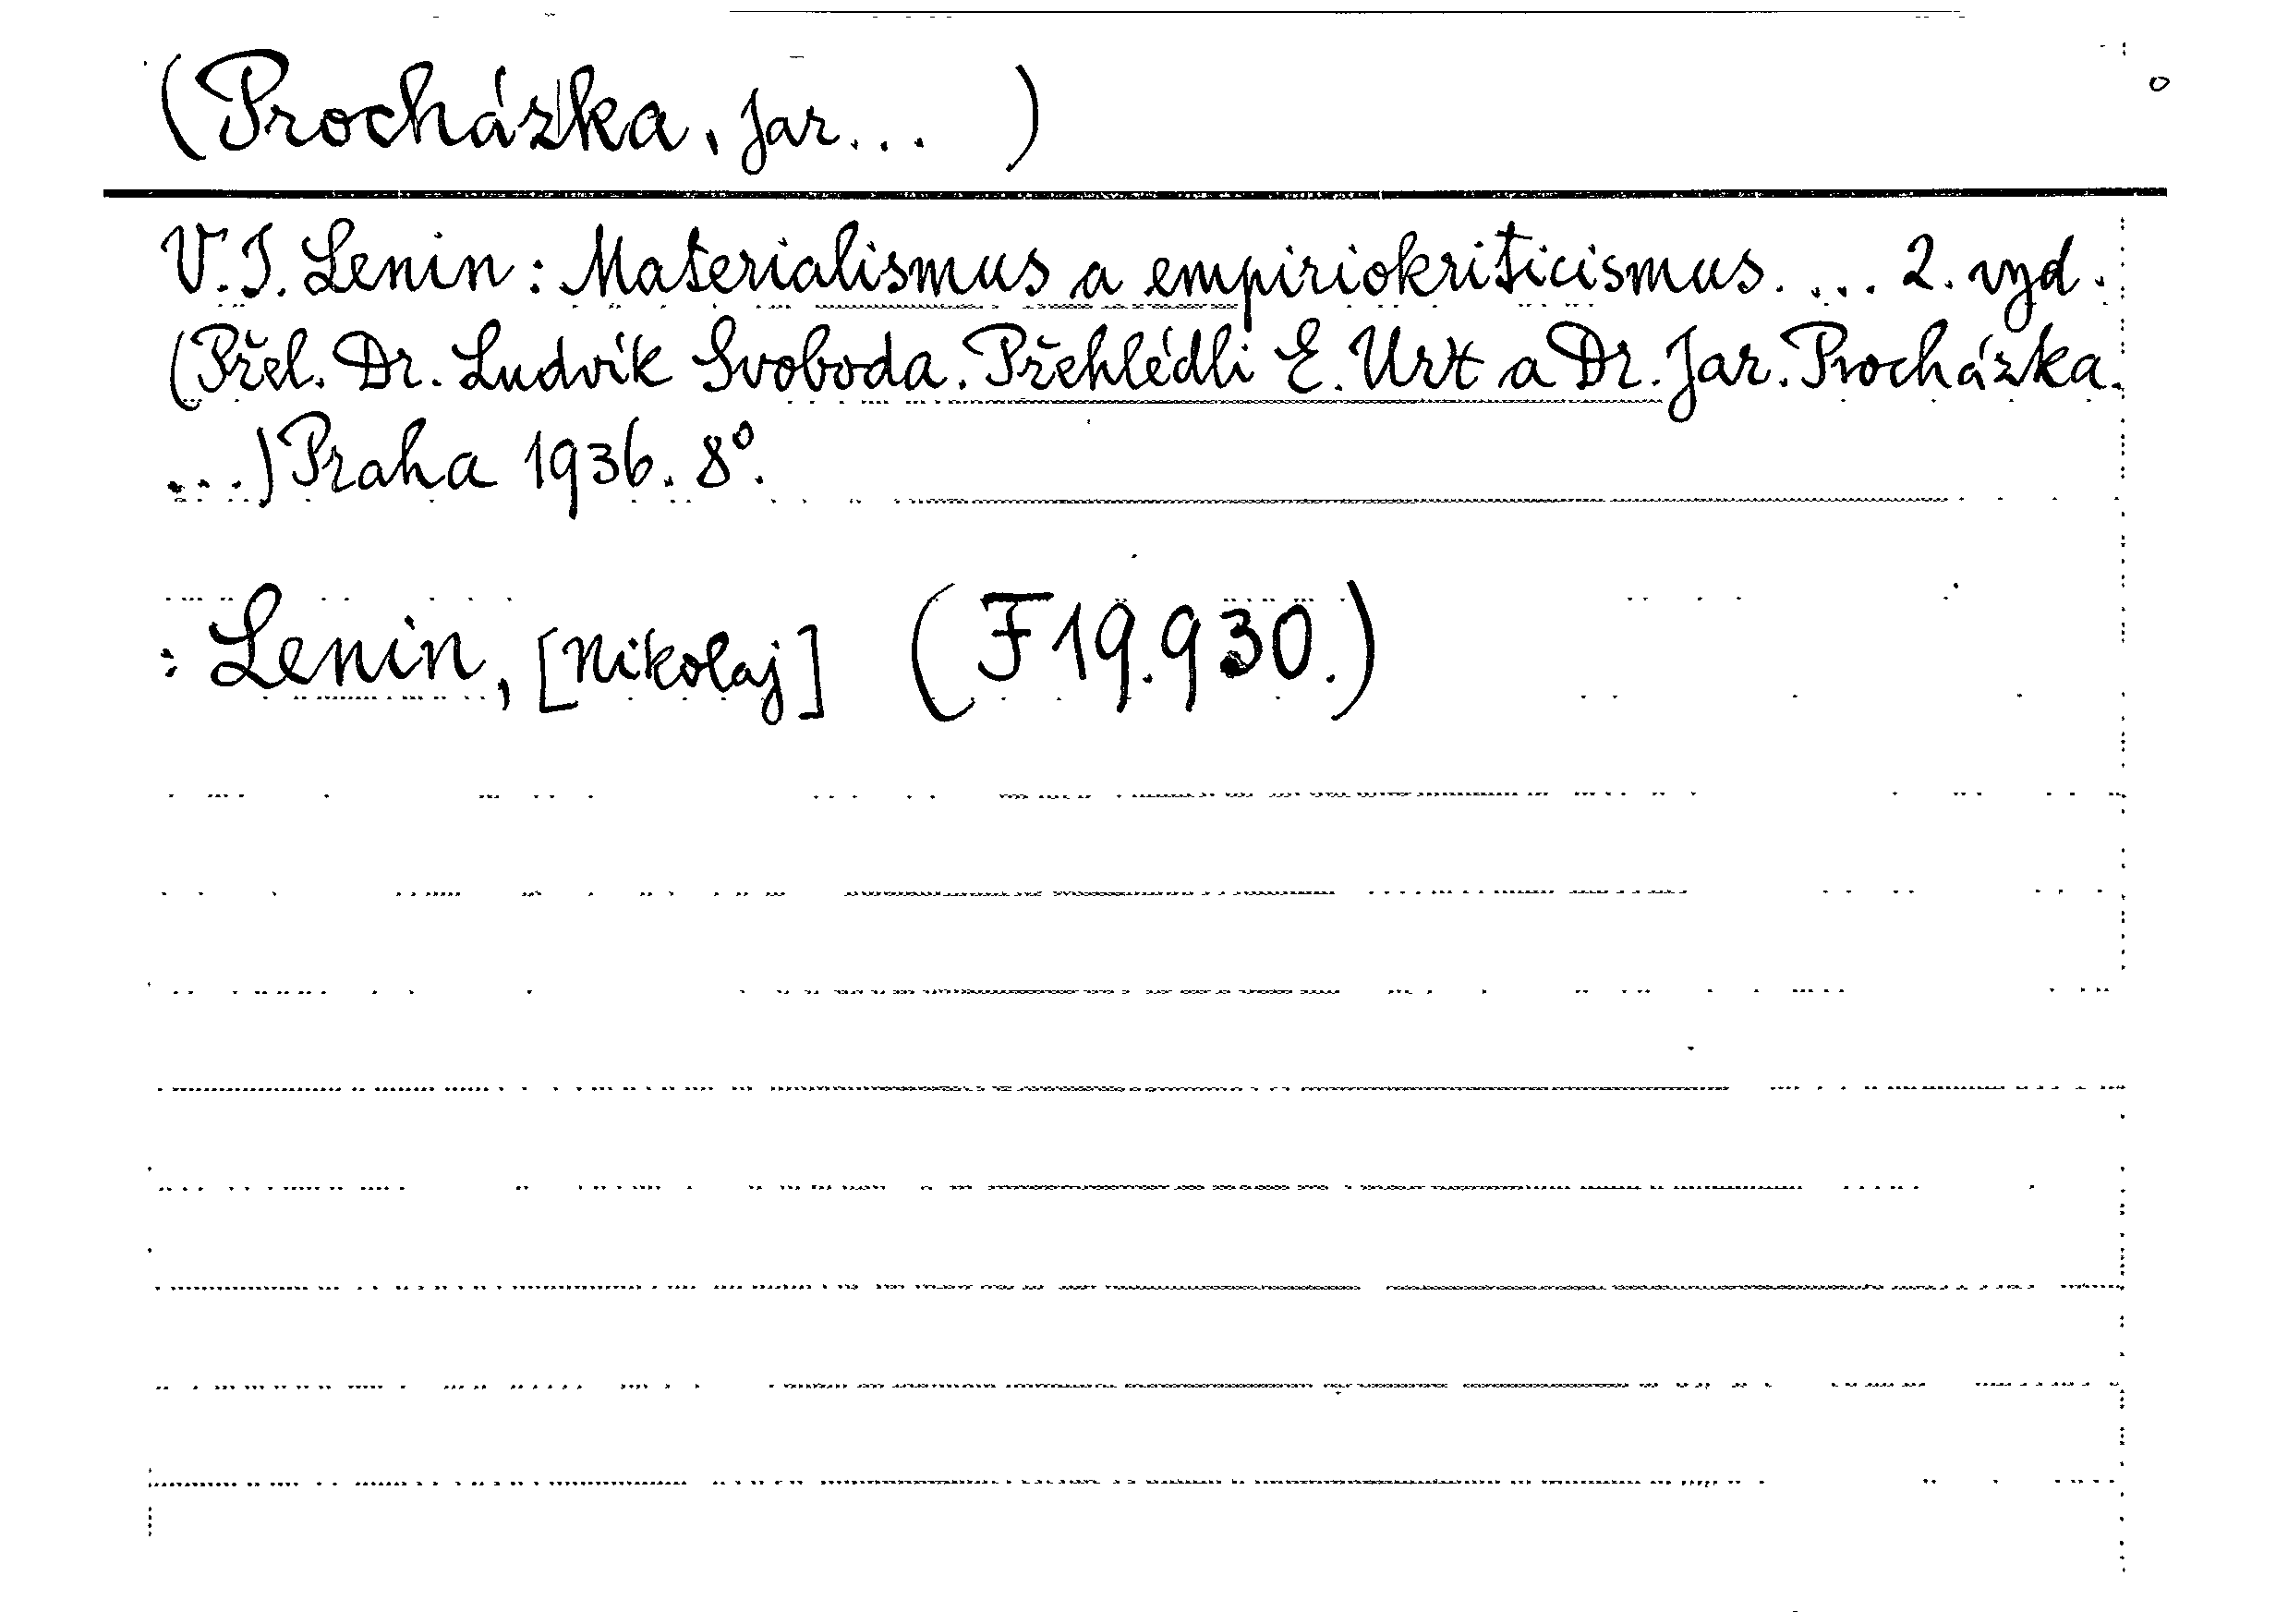 (Procházka, Jar... )
V. I. Lenin: Materialismus a empiriokriticismus. ... 2. vyd.
(Přel. Dr. Ludvík Svoboda. Přehlédli E. Urx a Dr. Jar. Procházka.
...) Praha 1936. 8°.
: Lenin, [Nikolaj] (F 19.930.)